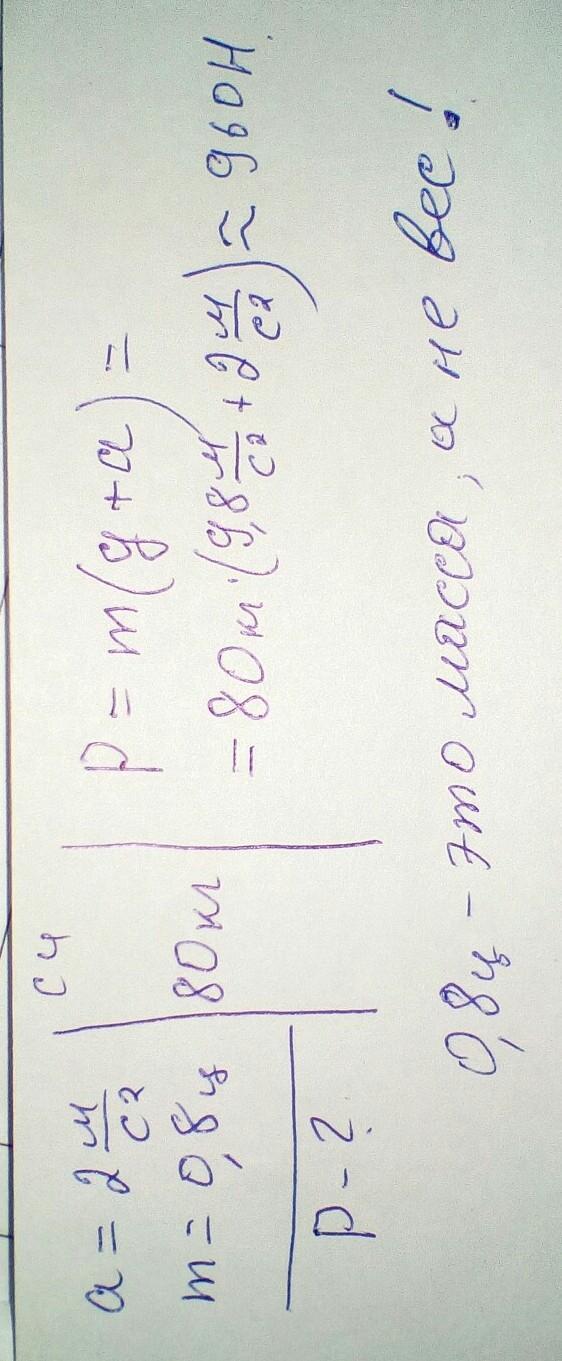 a = 2 м/с² СИ P = m(g + a) =
m = 0,8 ц 80 кг = 80 кг · (9,8 м/с² + 2 м/с²) ≈ 960 Н.
P - ?
0,8 ц - это масса, а не вес!